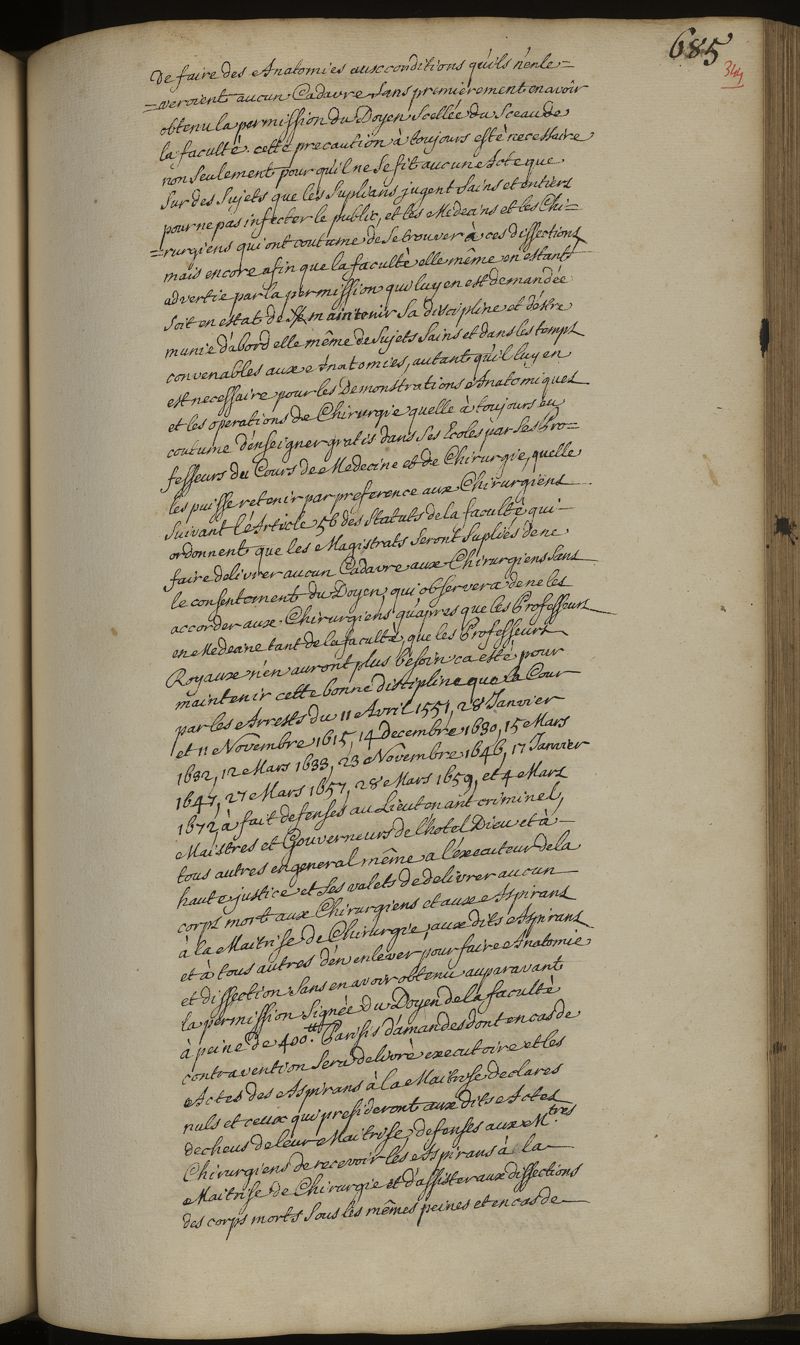 685
344
De faire des Anatomies aux conditions qu'ils n'enle=
=veroient aucun Cadavre Sans premierement en avoir
obtenu la permission du Doyen Scellée du Sceau de
la faculté. cette precaution à toujours esté necessaire
non Seulement pour qu'il ne Se fit aucun Acte que
Sur des Sujets que les Suplians jugent Sains et entiers
pour ne pas infecter le public, et les Medecins et les Chi=
=rurgiens qui ont coutume de Se trouver à ces dissections
mais encore afin que la faculté elle même en estant
advertie par la permission qui luy en est demandée
Soit en estat de maintenir Sa discipline et d'éstre
munie d'abord elle même de Sujets Sains et dans les temps
convenables aux Anatomies, autant qu'il luy en
est necessaire pour les Demonstrations Anatomiques
et les operations de Chirurgie quelle à toujours eu
coutume d'énseigner gratis dans Ses Ecoles par Ses Pro=
fesseurs du Cours de Medecine et de Chirurgie, quelle
les puisse retenir par preference aux Chirurgiens
Suivant l'Article 56 des Statuts de la faculté qui
ordonnent que les Magistrats Seront Supliés de ne
faire delivrer aucun Cadavre aux Chirurgiens Sans
le consentement du Doyen, qui observera de ne les
accorder aux Chirurgiens qu'apres que les Professeurs
en Medecine tant de la faculté, que les Professeurs
Royaux n'en auront plus besoin ca esté pour
maintenir cette bonne discipline que la Cour
par les Arrests du 11 Avril 1551, 28 Janvier
et 11 Novembre 1615, 14 Decembre 1630, 15 Mars
1632, 12 Mars 1633, 23 Novembre 1646, 17 Janvier
1647, 27 Mars 1657, 28 Mars 1659, et 4 Mars
1672, à fait defenses au Lieutenant criminel,
Maistres et Gouverneurs de l'hotel Dieu et à
tous autres en general même a l'éxecuteur de la
haute justice et Ses valets de delivrer aucun
corps mort aux Chirurgiens et aux Aspirans
à la Maitrise de Chirurgie, aux dits Aspirans
et à tous autres d'en enlever pour faire Anatomie
et dissection Sans en avoir obtenu auparavant
la permission Signée du Doyen de la faculté
à peine de 400.tt Parisis d'amandes dont en cas de
contravention Sera delivré executoire et les
Actes des Aspirans à la Maitrise declares
nuls et ceux qui presideront aux dits Actes
decheus de leur Maitrise, defenses aux M.tres
Chirurgiens de recevoir les Aspirans à la
Maitrise de Chirurgie et d'assister aux dissections
des corps morts Sous les mêmes peines et en cas de